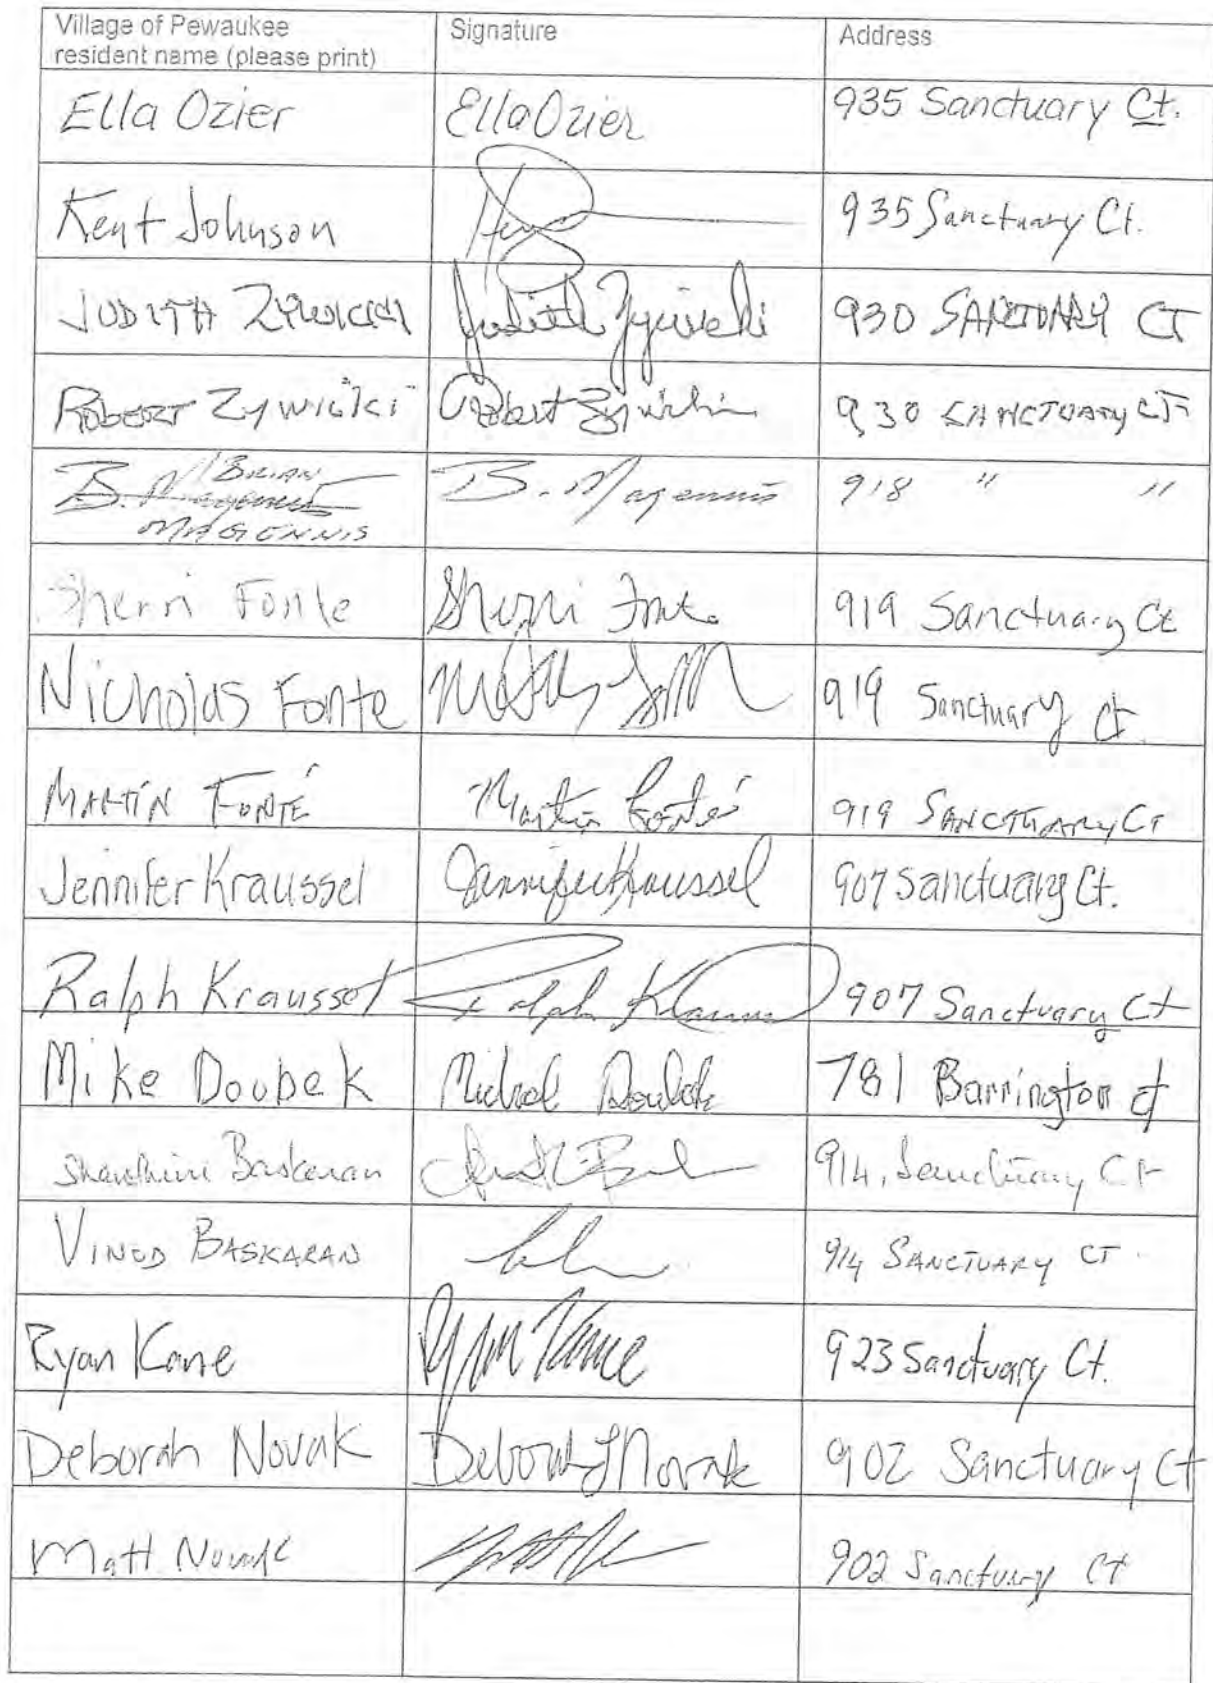 Village of Pewaukee Signature Address
resident name (please print)
Ella Ozier Ella Ozier 935 Sanctuary Ct.
Kent Johnson 935 Sanctuary Ct.
JUDITH Judith Zywicki 930 SANCTUARY CT
ROBERT Zywicki Robert Zywicki 930 SANCTUARY CT
BRIAN
B. Magennis B. Magennis 918 " "
MAGENNIS
Sherri Fonte Sherri Fonte 919 Sanctuary Ct
Nicholas Fonte 919 Sanctuary Ct
MARTÍN FONTÉ Martín Fonté 919 SANCTUARY CT
Jennifer Kraussel Jennifer Kraussel 907 Sanctuary Ct.
Ralph Kraussel Ralph 907 Sanctuary Ct
Mike Doubek Michael Doubek 781 Barrington ct
Baskaran 914, Sanctuary Ct
VINOD BASKARAN 914 SANCTUARY CT.
Ryan Kane Ryan Kane 923 Sanctuary Ct.
Deborah Novak Deborah J Novak 902 Sanctuary Ct
Matt Novak 902 Sanctuary Ct